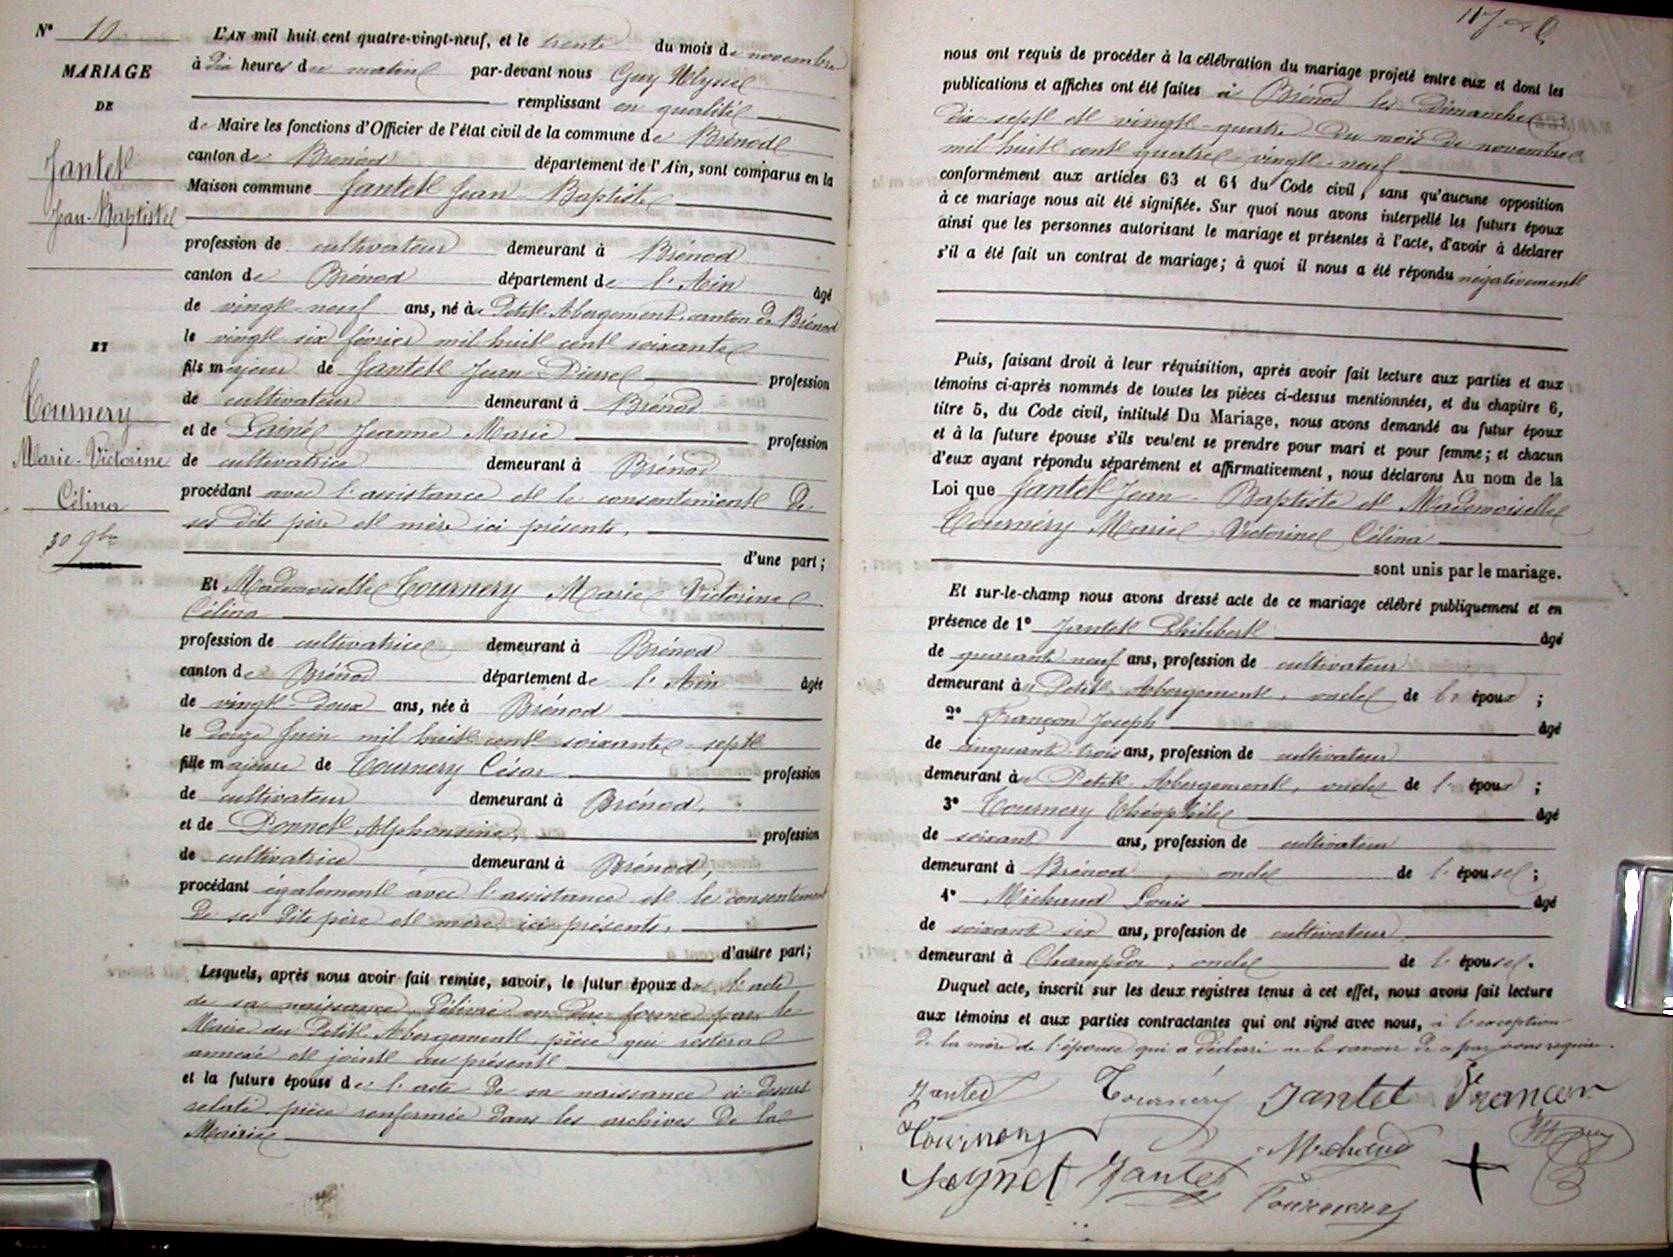 N° 10
MARIAGE
DE
Jantet
Jean-Baptiste
ET
Tournery
Marie-Victorine
Célina
30 9bre
L'AN mil huit cent quatre-vingt-neuf, et le trente du mois de novembre
à dix heures du matin par-devant nous Guy Ulysse
remplissant en qualité
de Maire les fonctions d'Officier de l'état civil de la commune de Brénod
canton de Brénod département de l'Ain, sont comparus en la
Maison commune Jantet Jean-Baptiste
profession de cultivateur demeurant à Brénod
canton de Brénod département de l'Ain âgé
de vingt-neuf ans, né à Petit-Abergement, canton de Brénod
le vingt six février mil huit cent soixante
fils majeur de Jantet Jean Pierre profession
de cultivateur demeurant à Brénod
et de Lainé Jeanne Marie profession
de cultivatrice demeurant à Brénod
procédant avec l'assistance et le consentement de
ses dits père et mère ici présents,
d'une part;
Et Mademoiselle Tournery Marie Victorine
Célina
profession de cultivatrice demeurant à Brénod
canton de Brénod département de l'Ain âgée
de vingt-deux ans, née à Brénod
le douze juin mil huit cent soixante-sept
fille majeure de Tournery César profession
de cultivateur demeurant à Brénod,
et de Ponnet Alphonsine, profession
de cultivatrice demeurant à Brénod,
procédant également avec l'assistance et le consentement
de ses dits père et mère ici présents,
d'autre part;
Lesquels, après nous avoir fait remise, savoir, le futur époux de l'acte
de sa naissance délivré en due forme par le
Maire du Petit-Abergement, pièce qui restera
annexée et jointe au présent
et la future épouse de l'acte de sa naissance ci-dessus
relaté pièce renfermée dans les archives de la
Mairie
nous ont requis de procéder à la célébration du mariage projeté entre eux et dont les
publications et affiches ont été faites à Brénod les dimanches
dix-sept et vingt-quatre du mois de novembre
mil huit cent quatre-vingt-neuf
conformément aux articles 63 et 64 du Code civil, sans qu'aucune opposition
à ce mariage nous ait été signifiée. Sur quoi nous avons interpellé les futurs époux
ainsi que les personnes autorisant le mariage et présentes à l'acte, d'avoir à déclarer
s'il a été fait un contrat de mariage; à quoi il nous a été répondu négativement
Puis, faisant droit à leur réquisition, après avoir fait lecture aux parties et aux
témoins ci-après nommés de toutes les pièces ci-dessus mentionnées, et du chapitre 6,
titre 5, du Code civil, intitulé Du Mariage, nous avons demandé au futur époux
et à la future épouse s'ils veulent se prendre pour mari et pour femme; et chacun
d'eux ayant répondu séparément et affirmativement, nous déclarons Au nom de la
Loi que Jantet Jean-Baptiste et Mademoiselle
Tournéry Marie Victorine Célina
sont unis par le mariage.
Et sur-le-champ nous avons dressé acte de ce mariage célébré publiquement et en
présence de 1° Jantet Philibert âgé
de quarante neuf ans, profession de cultivateur
demeurant à Petit-Abergement, oncle de l'époux;
2° Françon Joseph âgé
de cinquante-trois ans, profession de cultivateur
demeurant à Petit-Abergement, oncle de l'époux;
3° Tournery Théophile âgé
de soixant ans, profession de cultivateur
demeurant à Brénod, oncle de l'épouse;
4° Michaud Louis âgé
de soixant six ans, profession de cultivateur
demeurant à Champdor, oncle de l'épouse.
Duquel acte, inscrit sur les deux registres tenus à cet effet, nous avons fait lecture
aux témoins et aux parties contractantes qui ont signé avec nous, à l'exception
de la mère de l'épouse qui a déclaré ne le savoir de ce par nous requise.
Jantet Tournéry Jantet Françon
Tournery Michaud
Jantet
Tournery